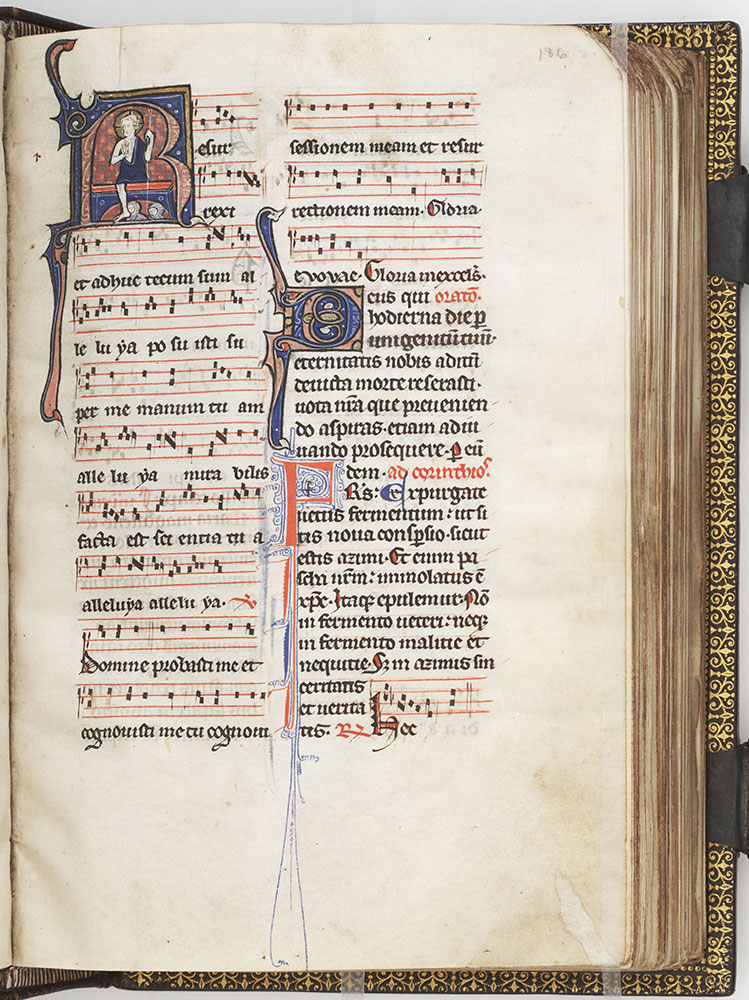 186
Resur
rexi
et adhuc tecum sum al
le lu ya po su isti su
per me manum tu am
alle lu ya mira bilis
facta est sci entia tu a
alleluya alle lu ya.
Domine probasti me et
cognouisti me tu cognoui
sessionem meam et resur
rectionem meam. Gloria
Euouae. Gloria in excels.
Deus qui oratō.
hodierna die p
unigenitum tuum
eternitatis nobis aditū
deuicta morte reserasti.
uota nr̄a que preuenien
do aspiras. etiam adiu
uando prosequere. p eū
dem. ad corinthios.
Frs: Expurgate
uetus fermentum: ut si
tis noua conspsio. sicut
estis azimi. Et enim pa
scha nr̄m: immolatus ē
xpc. Itaq; epulemur. Nō
in fermento ueteri: neq;
in fermento malitie et
nequitie. S; in azimis sin
ceritatis
et uerita
tis. R Hec